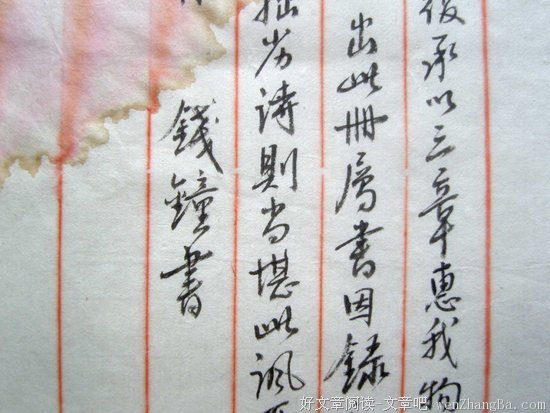 復承以三章惠我
出此冊屬書因錄
拙劣詩則當堪此諷
錢鐘書
好文章阅读-文章吧 wenZhangBa.com